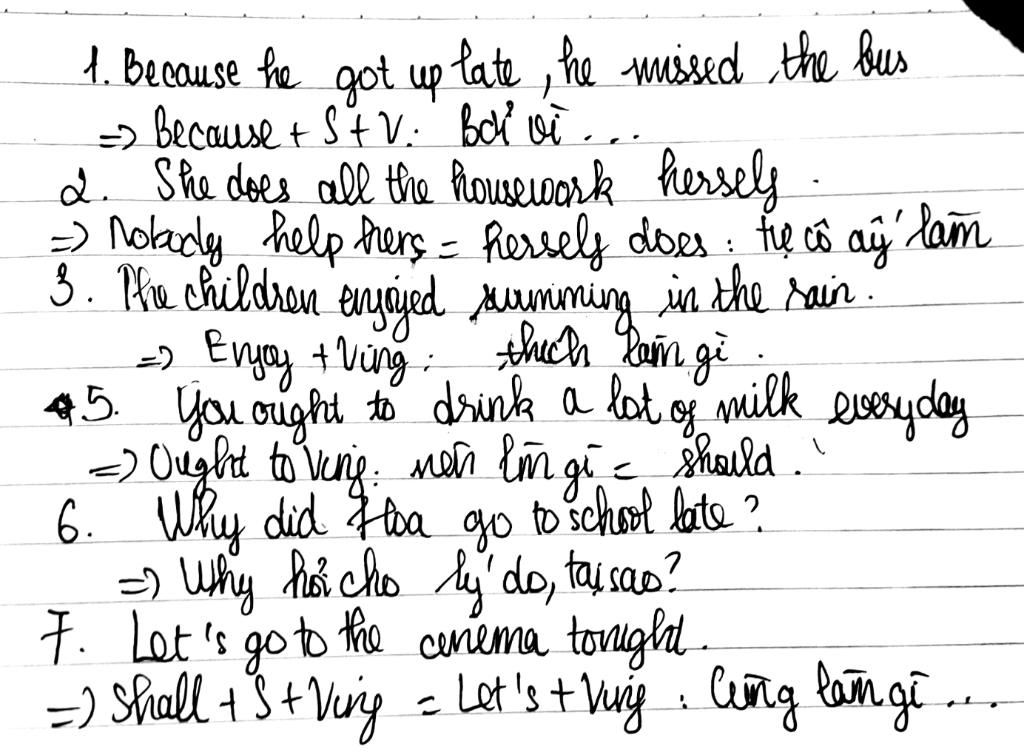 1. Because he got up late, he missed the bus
=> Because + S + V: Bởi vì ...
2. She does all the housework herself.
=> Nobody help hers = herself does: tự cô ấy làm
3. The children enjoyed swimming in the rain.
=> Enjoy + Ving: thích làm gì.
5. You ought to drink a lot of milk everyday
=> Ought to Ving: nên làm gì = should.
6. Why did Hoa go to school late?
=> Why hỏi cho lý do, tại sao?
7. Let's go to the cenema tonight.
=> Shall + S + Ving = Let's + Ving: Cùng làm gì ...